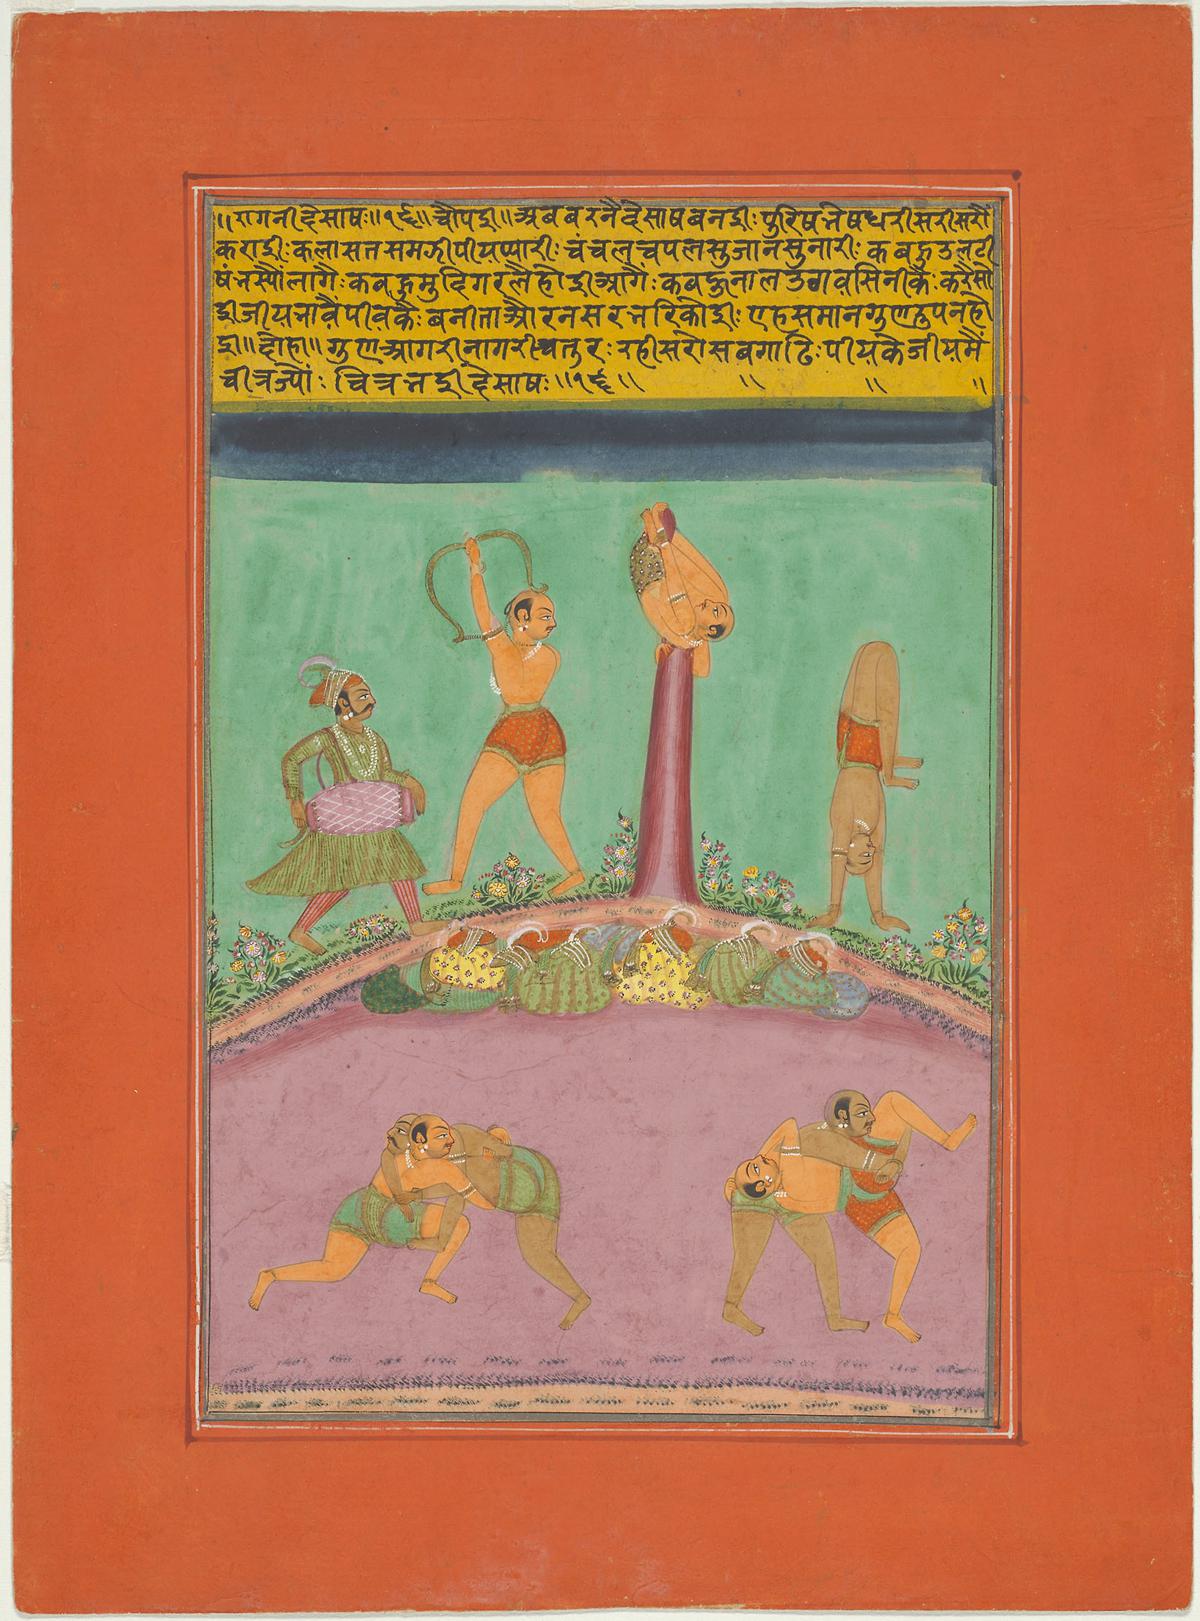 ॥रागनीदेसाषः॥१६॥चौपई॥अबबरनैदेसाषबनई: पुरिषभेषधरीसरीसरौं
कराई: कलासतसमगीपीयप्यारी: चंचलचपलसुजानसुनारी: कबहुउलटी
षंभस्यौंलागै:कबहुमुदिगरलैहोईआगै:कबहुनालउठावसिनीकै:करैसो
ईजीयभावैपीवकै:बनीताऔरनसरभरिकोई:एहसमानगुणरुपनहो
ई॥दोहा॥गुणआगरीनागरीचतुर:रहीसरोसबगाढि:पीयकैजीयमैं
चीत्रज्यौं: चित्रभईदेसाषः॥१६॥ ॥ ॥ ॥